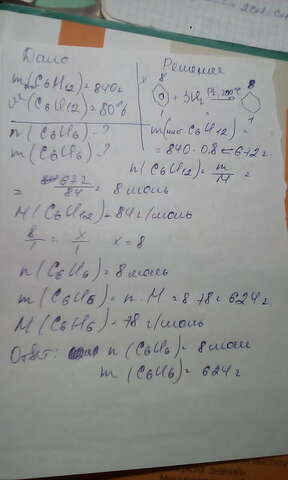 Дано
Решение
m(C6H12)=840г
ω(C6H12)=80%
n(C6H6)-?
m(C6H6)-?
8
+ 3H2 Pt, 300°C
8
1
1
m( C6H12)=
=840·0,8=672г
n(C6H12)= m/M =
= 672/84 = 8 моль
M(C6H12)=84г/моль
8/1 = x/1 x=8
n(C6H6)=8моль
m(C6H6)=n·M=8·78=624г
M(C6H6)=78г/моль
Ответ: n(C6H6)=8моль
m(C6H6)=624г